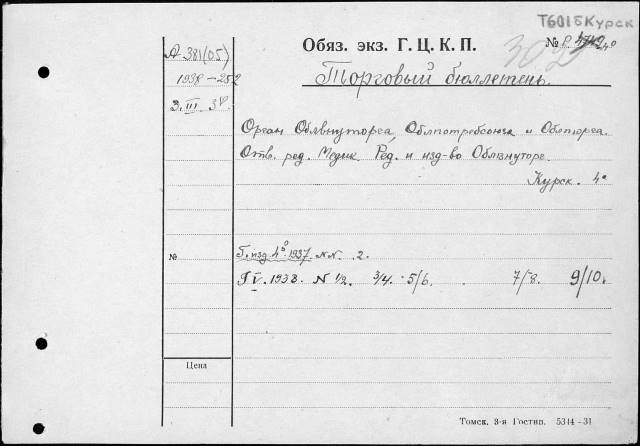 Т6015Курск
А 381(05)
Обяз. экз. Г. Ц. К. П.
№
1938-252
Торговый бюллетень.
3.III.38
Орган Облвнуторга, Облпотребсоюза и Облторга.
Отв. ред. Медик. Ред. и изд-во Облвнуторг.
Курск. 4°
№
Г. изд. 4° 1937. NN. 2.
1938. N 1/2. 3/4. 5/6. 7/8. 9/10.
Цена
Томск. 3-я Гостип. 5314-31